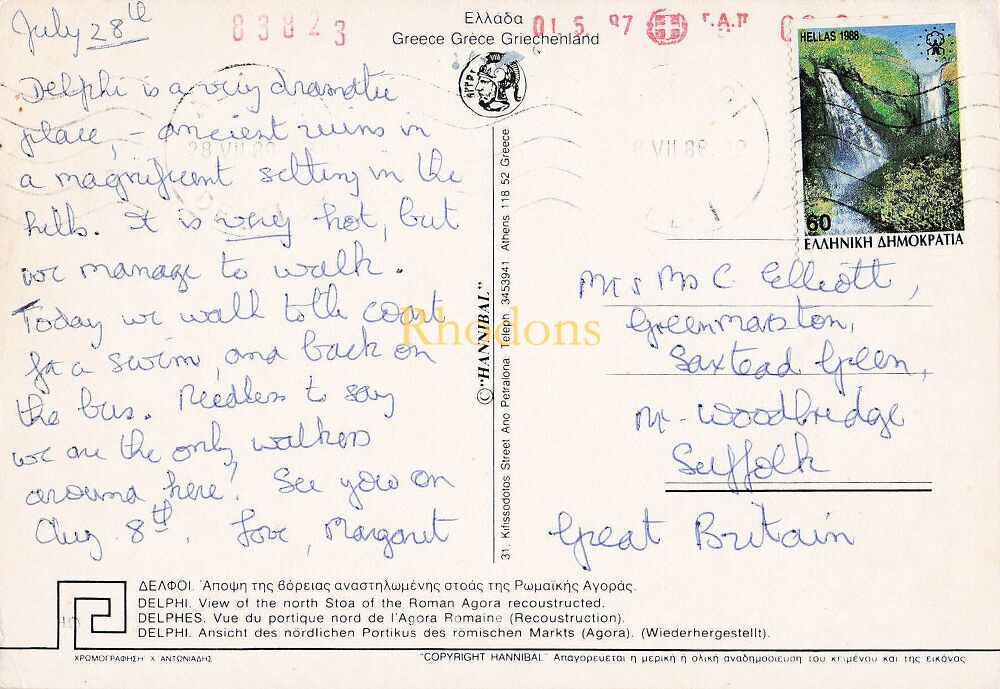 July 28th
83823
Ελλάδα
Greece Grèce Griechenland
01.6. 97
Γ.Α.Π
HELLAS 1988
60
ΕΛΛΗΝΙΚΗ ΔΗΜΟΚΡΑΤΙΑ
28 VII 88
VII 88. 12
Delphi is a very dramatic
place, - ancient ruins in
a magnificent setting in the
hills. It is very hot, but
we manage to walk.
Today we walk to the coast
for a swim, and back on
the bus. Needless to say
we are the only walkers
around here! See you on
Aug 8th. Love, Margaret
©"HANNIBAL"
31, Kifissodotos Street Ano Petralona Teleph. 3453941 Athens 118 52 Greece
Rhodons
Mrs M C Elliott,
Greenmarston,
Saxtead Green,
Nr. Woodbridge
Suffolk
Great Britain
ΔΕΛΦΟΙ. Άποψη της βόρειας αναστηλωμένης στοάς της Ρωμαϊκής Αγοράς.
DELPHI. View of the north Stoa of the Roman Agora recoustructed.
DELPHES. Vue du portique nord de l'Agora Romaine (Recoustruction).
DELPHI. Ansicht des nördlichen Portikus des römischen Markts (Agora). (Wiederhergestellt).
ΧΡΩΜΟΓΡΑΦΗΣΗ Χ ΑΝΤΩΝΙΑΔΗΣ
"COPYRIGHT HANNIBAL" Απαγορεύεται η μερική ή ολική αναδημοσίευση του κειμένου και της εικόνας